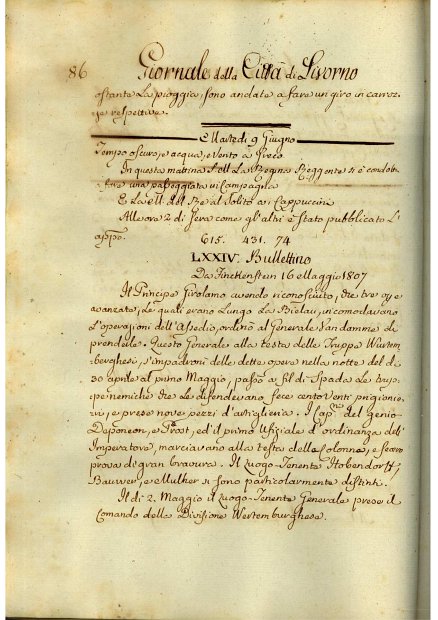 86 Giornale della Città di Livorno
ostante La pioggia, sono andate a fare un giro in carroz-
ze respettive.
Martedì 9 Giugno
Tempo oscuro, e acqua, e Vento a Greco
In questa mattina S. M. La Regina Reggente si è condotta
a fare una passeggiata in Campagna
E La M. del Re al Solito ai Cappuccini
Alle ore 2 di sera come gl'altri è stato pubblicato L'
appo. 615. 431. 74
LXXIV. Bullettino
Da Finckenstein 16 Maggio 1807
Il Principe Girolamo avendo riconosciuto, che tre opere
avanzate, Le quali erano Lungo La Bielau, incomodavano
L'operazioni dell'Assedio, ordinò al Generale Vandamme di
prenderle. Questo Generale alla testa delle Truppe Wurtem-
berghesi, s'impadronì delle dette opere nella notte del dì
30 aprile al primo Maggio, passò a fil di Spada Le trup-
pe nemiche che Le difendevano, fece cento venti prigionie-
ri, e prese nove pezzi d'artiglieria. I Cap.ni del genio
Deponton, e Prost, ed il primo Ufiziale d'ordinanza dell'
Imperatore, marciavano alla testa della Colonna, e fecero
prova di gran bravura. I Luogo-Tenenti Hohendorff,
Bawver, e Mulher si sono particolarmente distinti.
Il dì 2. Maggio il Luogo-Tenente Generale prese il
Comando della Divisione Wertemburghese.